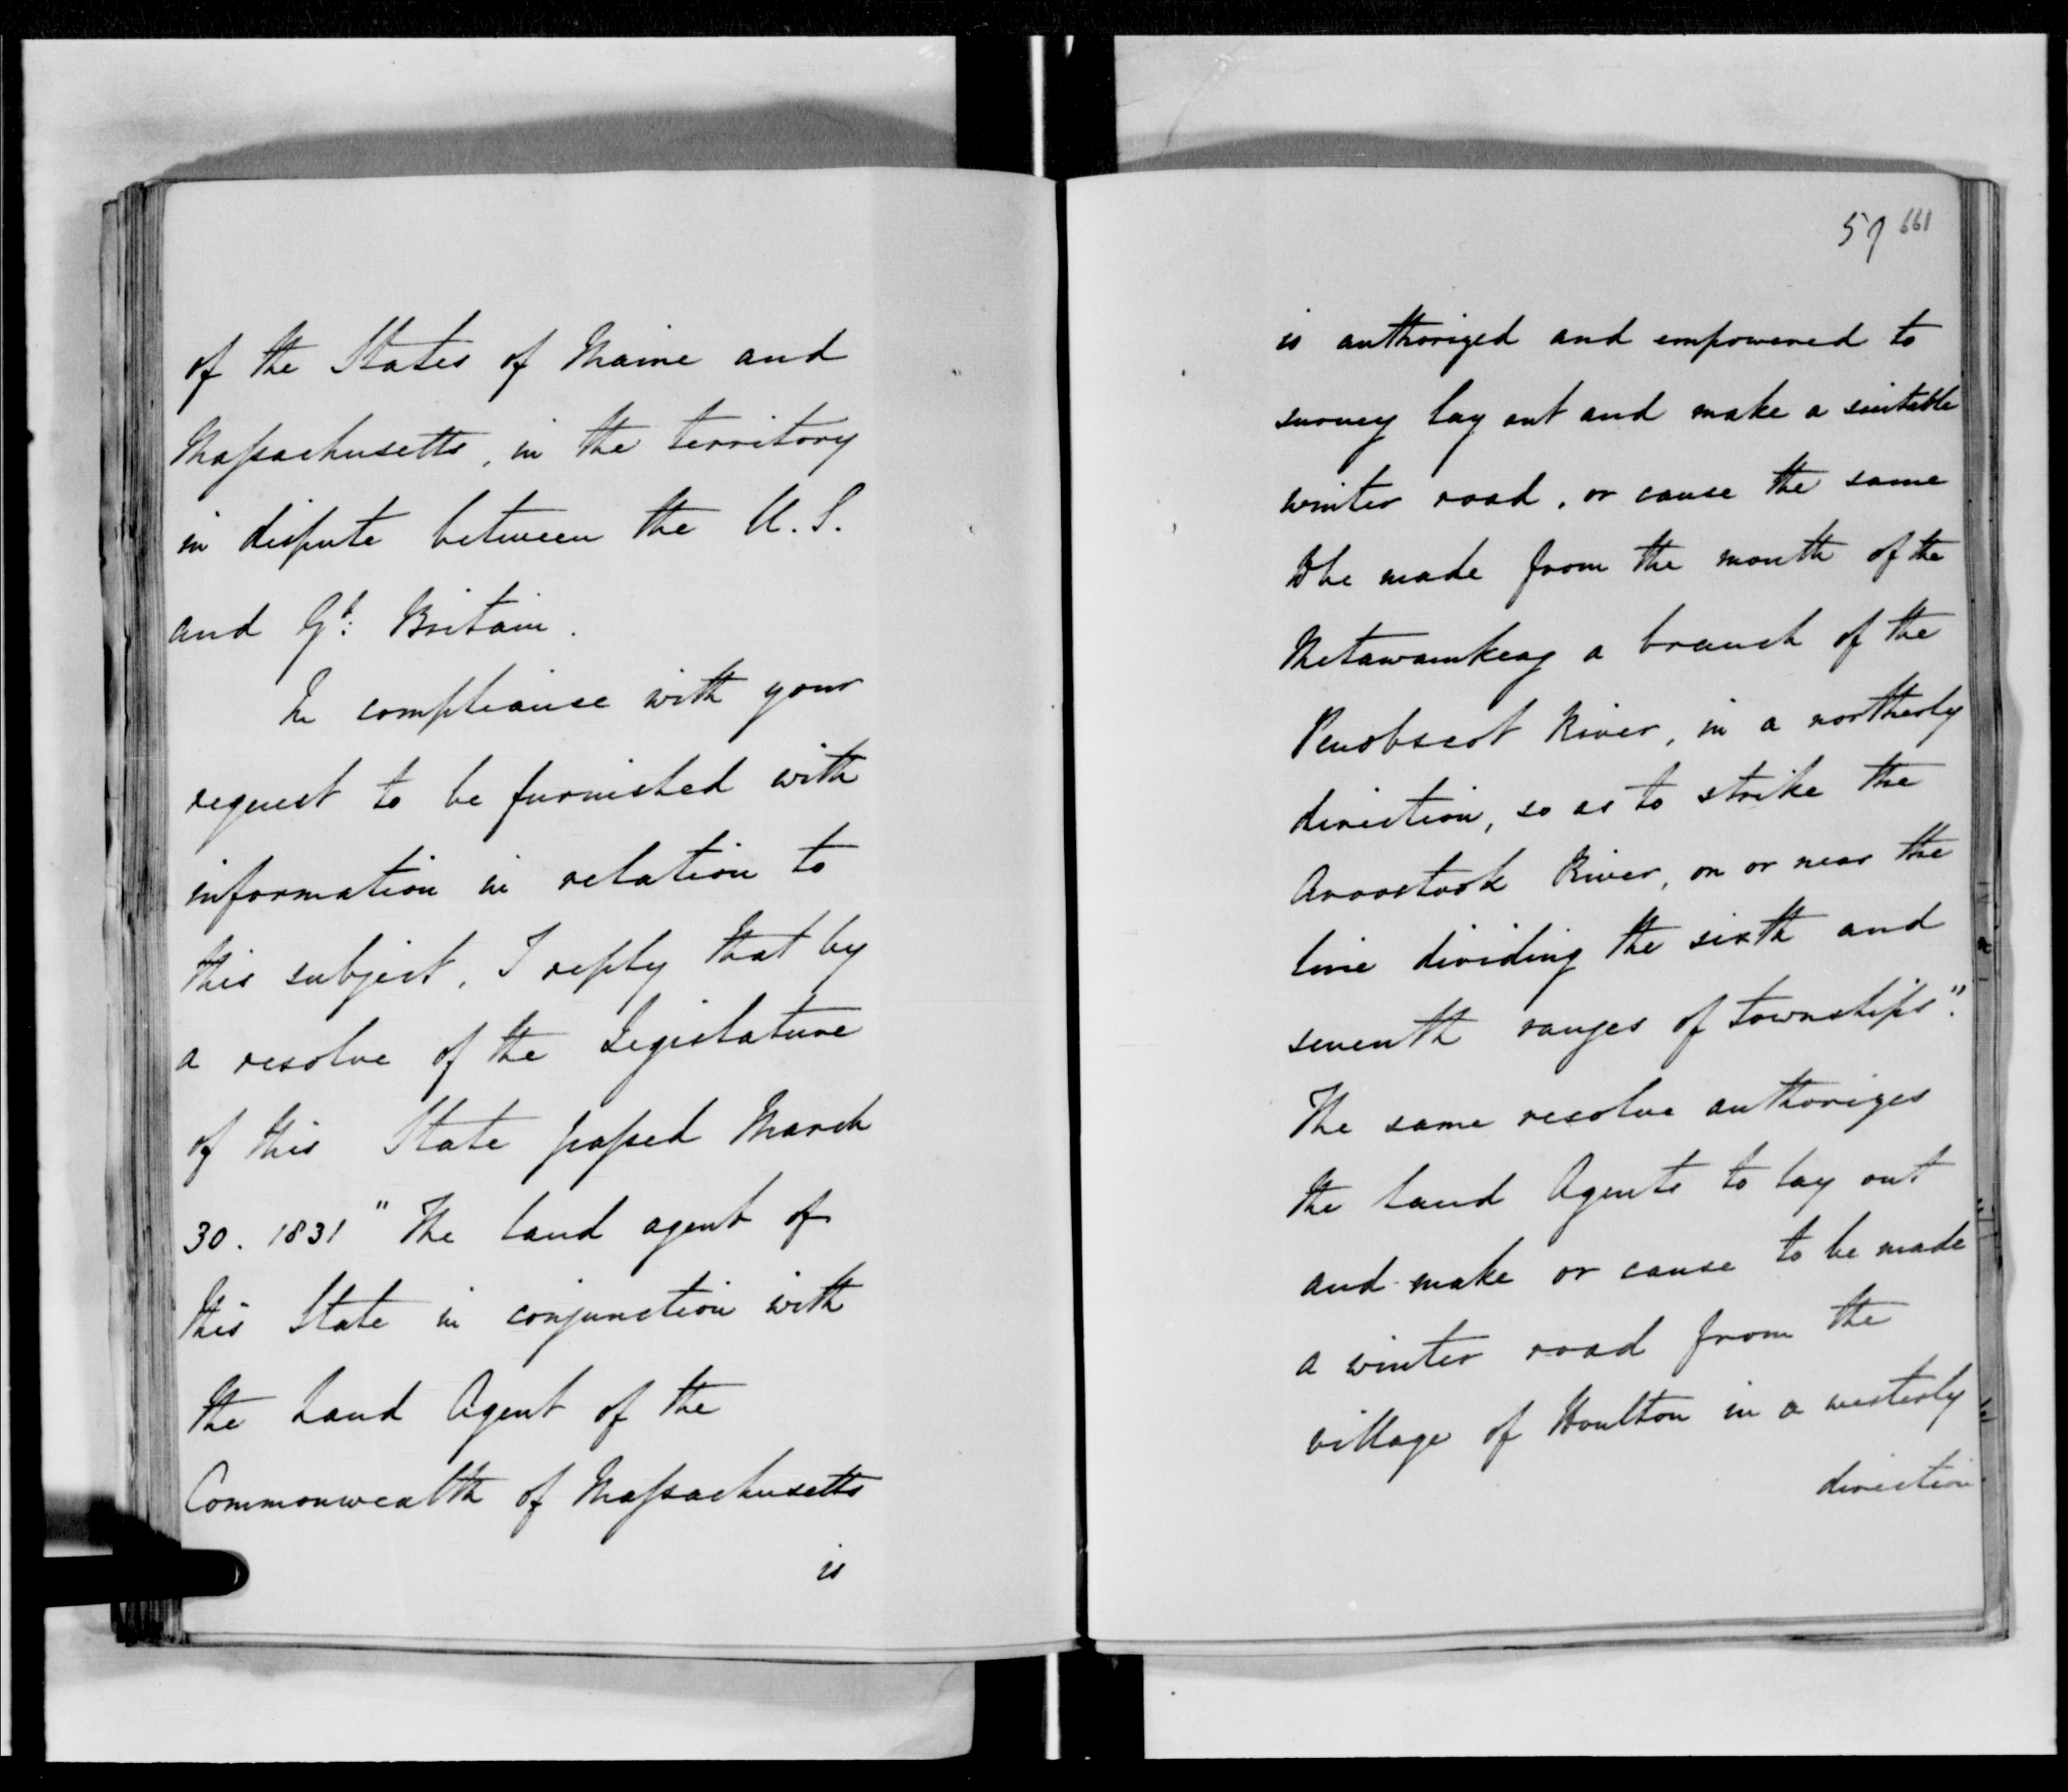 of the States of Maine and
Massachusetts, in the territory
in dispute between the U.S.
and Gt: Britain.
In compliance with your
request to be furnished with
information in relation to
this subject, I reply that by
a resolve of the Legislature
of this State passed March
30. 1831 "The land agent of
this State in conjunction with
the Land Agent of the
Commonwealth of Massachusetts
is
57 661
is authorized and empowered to
survey lay out and make a suitable
winter road, or cause the same
to be made from the mouth of the
Metawamkeag a branch of the
Penobscot River, in a northerly
direction, so as to strike the
Aroostook River, on or near the
line dividing the sixth and
seventh ranges of townships".
The same resolve authorizes
the Land Agents to lay out
and make or cause to be made
a winter road from the
village of Houlton in a westerly
direction